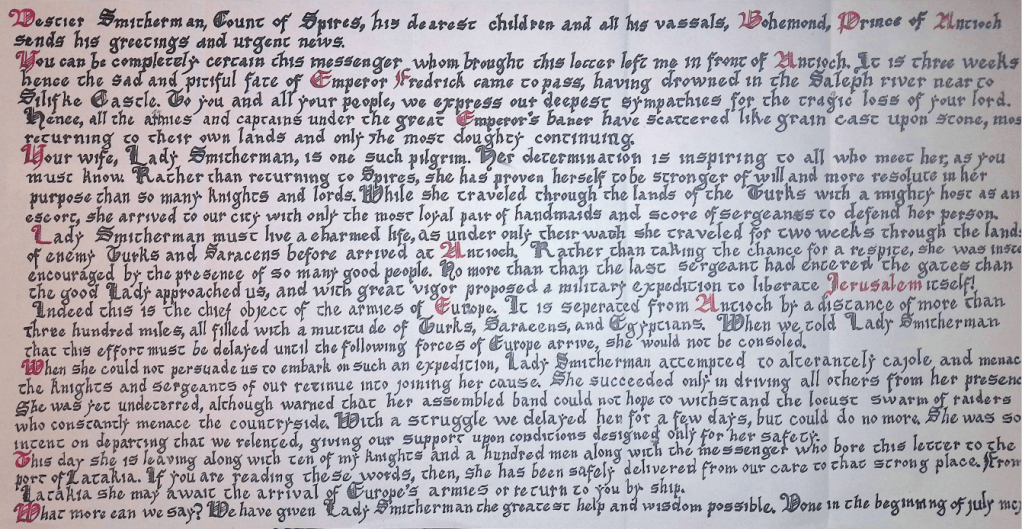 Destier Smitherman, Count of Spires, his dearest children and all his vassals, Bohemond, Prince of Antioch
sends his greetings and urgent news.
You can be completely certain this messenger whom brought this letter left me in front of Antioch. It is three weeks
hence the sad and pitiful fate of Emperor Fredrick came to pass, having drowned in the Saleph river near to
Silifke Castle. To you and all your people, we express our deepest sympathies for the tragic loss of your lord.
Hence, all the armies and captains under the great Emperor's baner have scattered like grain cast upon stone, mos
returning to their own lands and only the most doughty continuing.
Your wife, Lady Smitherman, is one such pilgrim. Her determination is inspiring to all who meet her, as you
must know. Rather than returning to Spires, she has proven herself to be stronger of will and more resolute in her
purpose than so many knights and lords. While she traveled through the lands of the Turks with a mighty host as an
escort, she arrived to our city with only the most loyal pair of handmaids and score of sergeants to defend her person.
Lady Smitherman must live a charmed life, as under only their wath she traveled for two weeks through the land
of enemy Turks and Saracens before arrived at Antioch. Rather than taking the chance for a respite, she was inste
encouraged by the presence of so many good people. No more than than the last sergeant had entered the gates than
the good Lady approached us, and with great vigor proposed a military expedition to liberate Jerusalem itself!
Indeed this is the chief object of the armies of Europe. It is seperated from Antioch by a distance of more than
three hundred miles, all filled with a mutitude of Turks, Saracens, and Egyptians. When we told Lady Smitherman
that this effort must be delayed until the following forces of Europe arrive, she would not be consoled.
When she could not persuade us to embark on such an expedition, Lady Smitherman attempted to alterantely cajole, and menac
the knights and sergeants of our retinue into joining her cause. She succeeded only in driving all others from her presenc
She was yet undeterred, although warned that her assembled band could not hope to withstand the locust swarm of raiders
who constantly menace the countryside. With a struggle we delayed her for a few days, but could do no more. She was so
intent on departing that we relented, giving our support upon conditions designed only for her safety.
This day she is leaving along with ten of my knights and a hundred men along with the messenger who bore this letter to the
port of Latakia. If you are reading these words, then, she has been safely delivered from our care to that strong place. From
Latakia she may await the arrival of Europe's armies or return to you by ship.
What more can we say? We have given Lady Smitherman the greatest help and wisdom possible. Done in the beginning of july mc